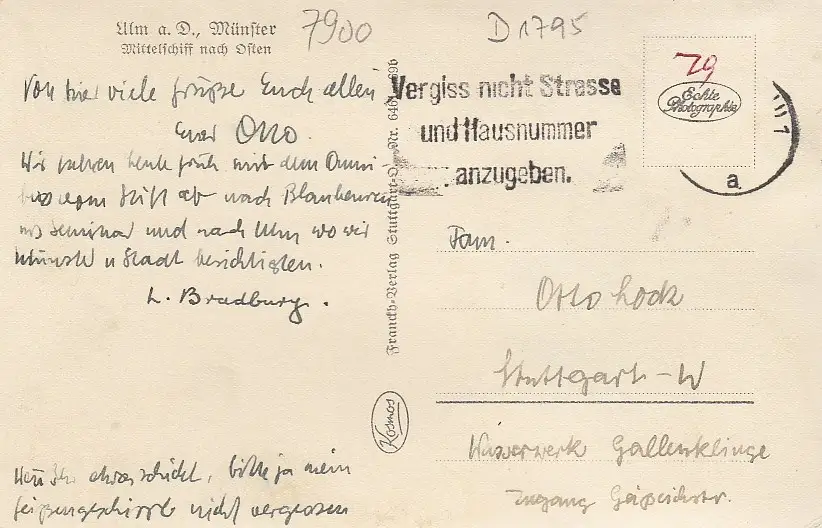 Ulm a. D., Münster
Mittelschiff nach Osten
7900
D 1795
79
Echte
Photographie
Vergiss nicht Strasse
und Hausnummer
anzugeben.
a
Von hier viele Grüße Euch allen
Euer Otto.
Wir fuhren heute früh mit dem Omni-
bus vom Stift ab nach Blaubeuren
ins Seminar und nach Ulm wo wir
Münster u Stadt besichtigten.
L. Bradburg.
Wenn Ihr etwas schickt, bitte ja mein
nicht vergessen
Franckh-Verlag Stuttgart-O. Nr.
Kosmos
Fam.
Otto Lock
Stuttgart-W
Wasserwerk Gallenklinge
Zugang